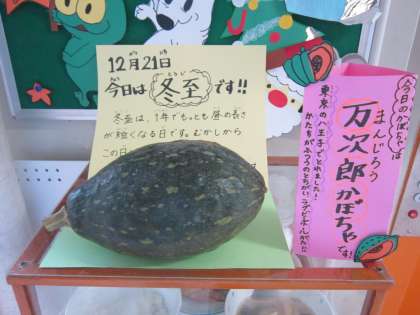 12月21日
今日は冬至です!!
とうじ
冬至は、1年でもっとも昼の長さ
が短くなる日です。むかしから
この日
今日のかぼちゃは
まんじろう
万次郎かぼちゃです!
東京の八王子でとれました!
かたちがふつうのとちがい、ラグビーボールがたに!